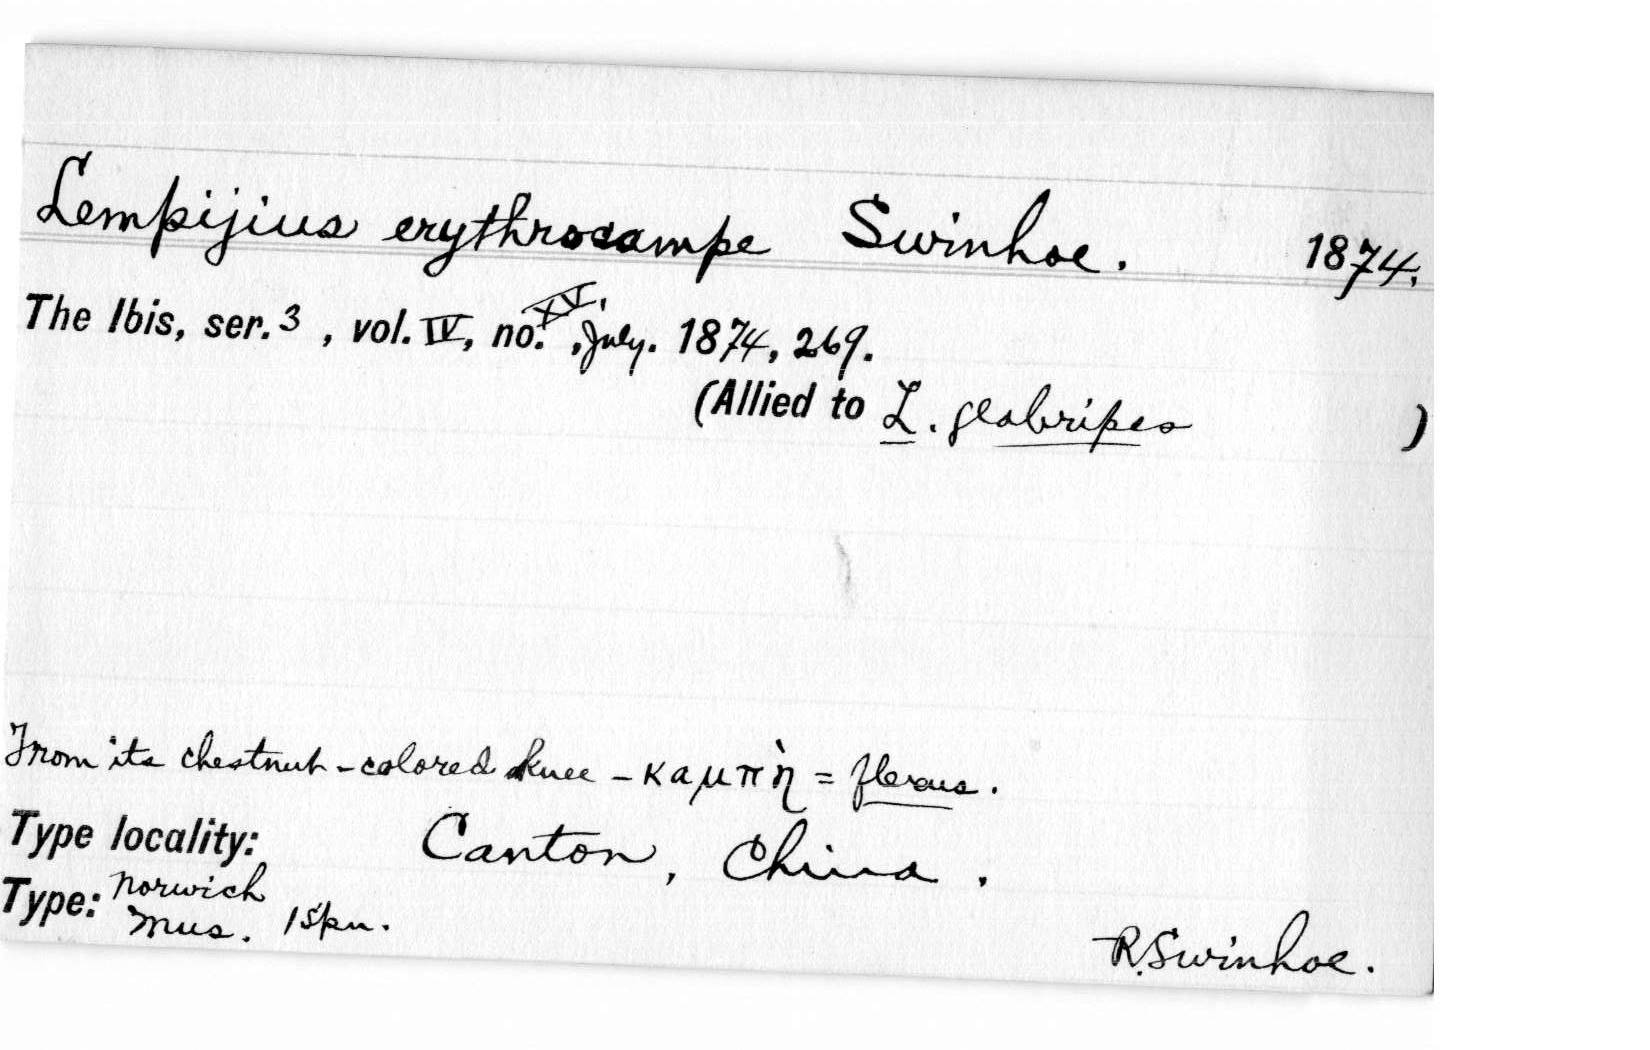 Lempijius erythrocampe Swinhoe. 1874.
The Ibis, ser. 3 , vol. IV, no. XV, , July. 1874, 269.
(Allied to L. glabripes )
From its chestnut-colored knee – καμπὴ = flexus.
Type locality: Canton, China.
Type: Norwich
Mus. 1 spn.
R. Swinhoe.